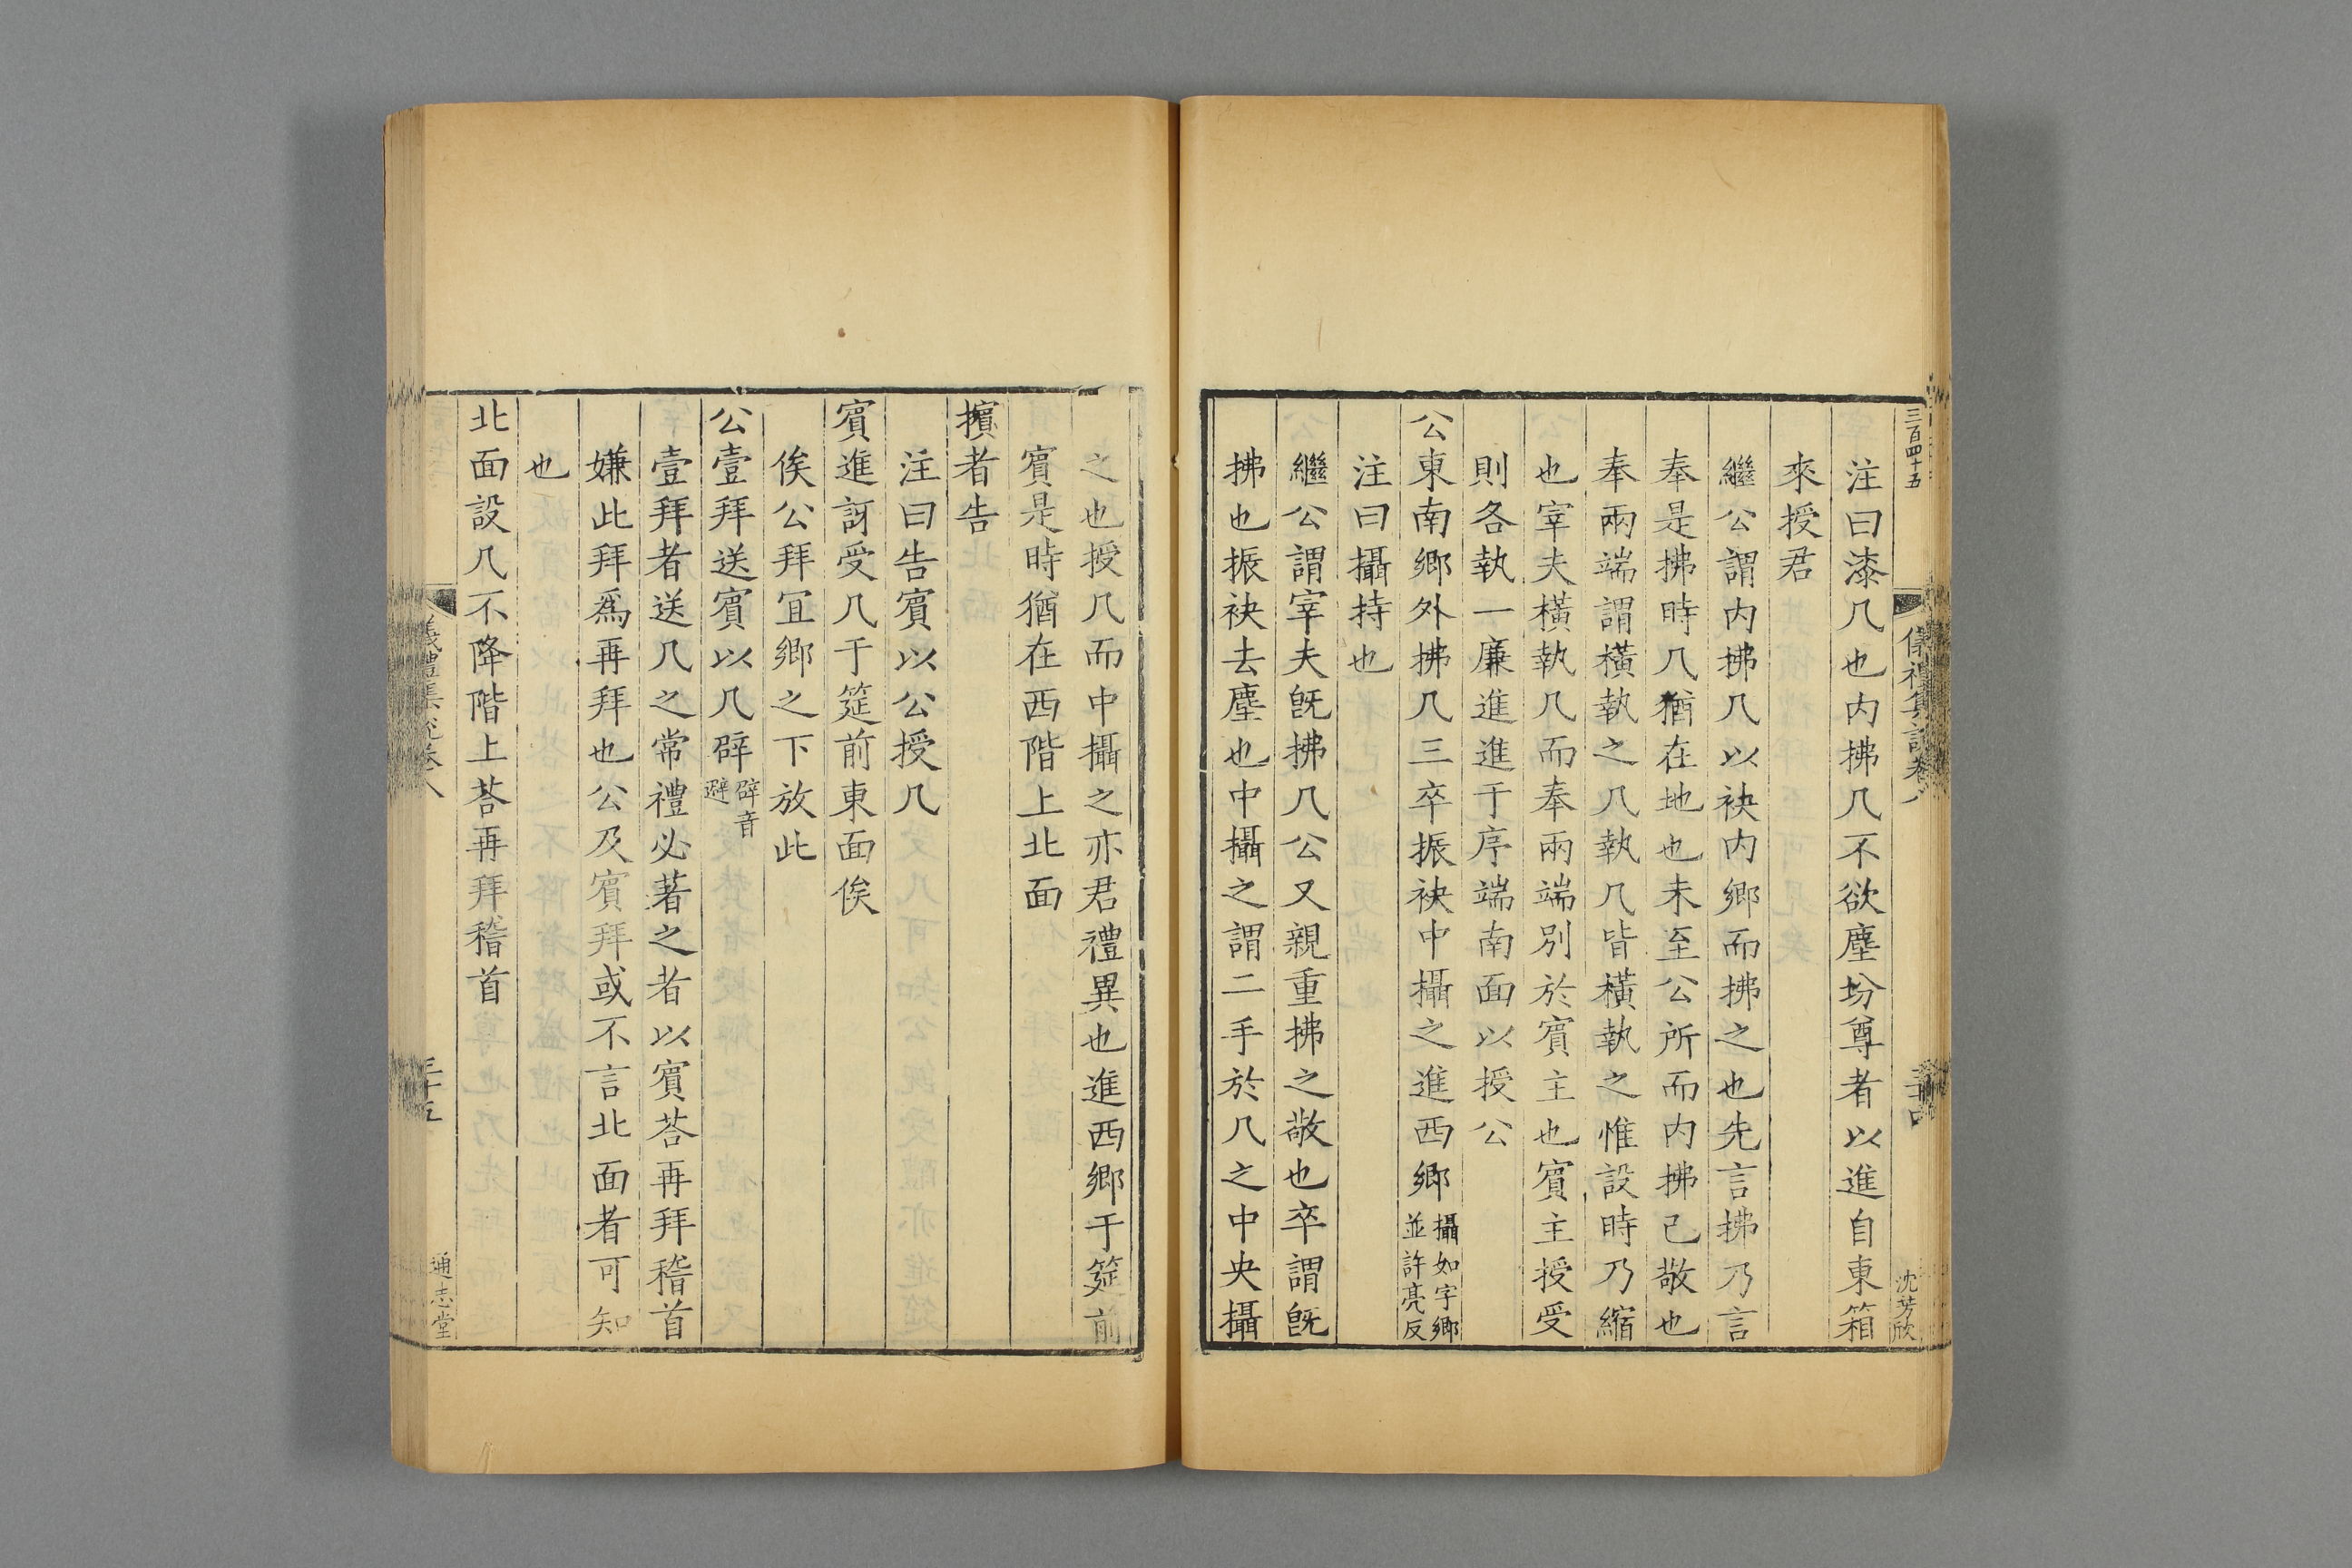 三百四十五
儀禮集說卷八
沈芳欣
注曰漆几也内拂几不欲塵坋尊者以進自東箱
來授君
繼公謂内拂几以袂内鄉而拂之也先言拂乃言
奉是拂時几猶在地也未至公所而内拂已敬也
奉兩端謂橫執之凡執几皆橫執之惟設時乃縮
也宰夫橫執几而奉兩端別於賓主也賓主授受
則各執一廉進進于序端南面以授公
公東南鄉外拂几三卒振袂中攝之進西鄉攝如字鄉並許亮反
注曰攝持也
繼公謂宰夫既拂几公又親重拂之敬也卒謂既
拂也振袂去塵也中攝之謂二手於几之中央攝
之也授几而中攝之亦君禮異也進西鄉于筵前
賓是時猶在西階上北面
擯者告
注曰告賓以公授几
賓進訝受几于筵前東面俟
俟公拜宜鄉之下放此
公壹拜送賓以几辟辟音避
壹拜者送几之常禮必著之者以賓荅再拜稽首
嫌此拜爲再拜也公及賓拜或不言北面者可知
也
北面設几不降階上荅再拜稽首
儀禮集說卷八
三十五
通志堂